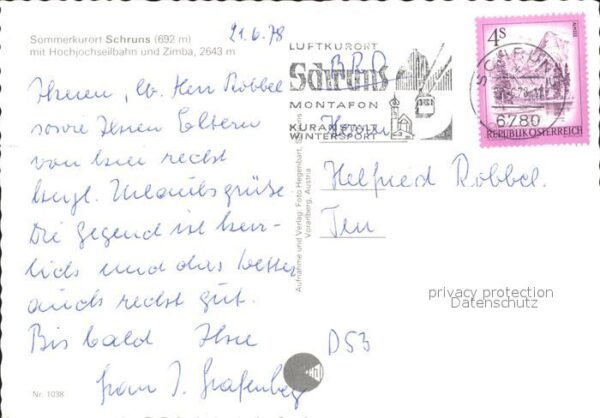 Sommerkurort Schruns (692 m)
mit Hochjochseilbahn und Zimba, 2643 m
21.6.78
Ihnen, lb. Herr Robbel
sowie Ihren Eltern
von hier recht
herzl. Urlaubsgrüße.
Die Gegend ist herr-
lich und das Wetter
auch recht gut.
Bis bald Ihre
Frau J. Grafenberg
Nr. 1038
Aufnahme und Verlag: Foto Hegenbart, Schruns
Vorarlberg, Austria
LUFTKURORT
Schruns
MONTAFON
KURANSTALT
WINTERSPORT
SCHRUNS
6780
4S
REPUBLIK ÖSTERREICH
BRD
Herrn
Helfried Robbel
privacy protection
Datenschutz
D53